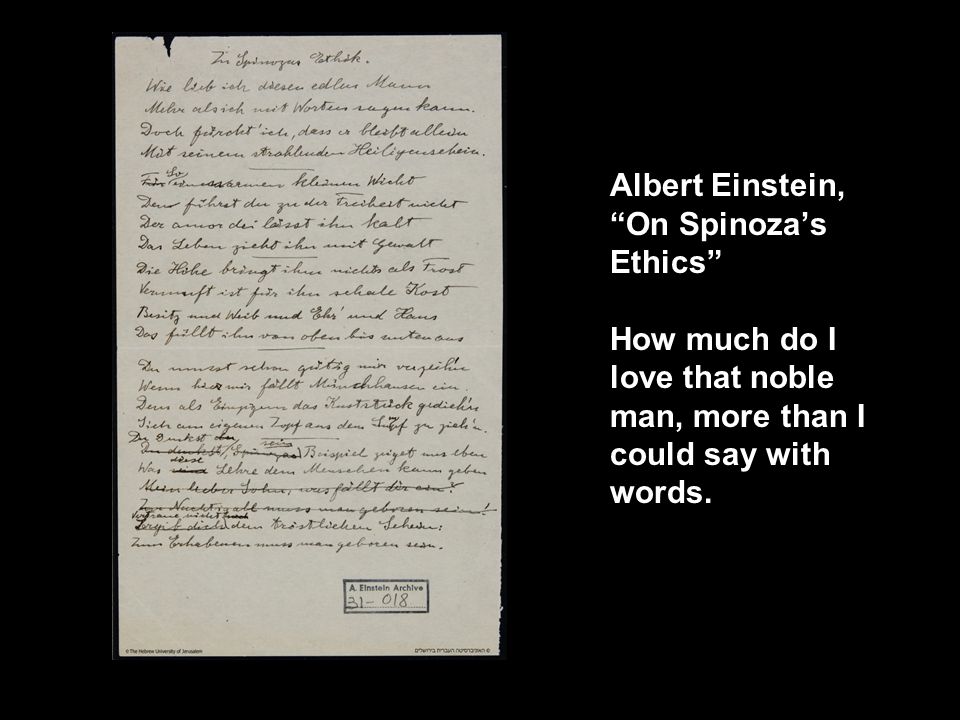 Zu Spinozas Ethik.
Wie lieb ich diesen edlen Mann
Mehr als ich mit Worten sagen kann.
Doch fürcht' ich, dass er bleibt allein
Mit seinem strahlenden Heiligenschein.
So armen kleinen Wicht
Den führst du zu der Freiheit nicht
Der amor dei lässt ihn kalt
Das Leben zieht ihn mit Gewalt
Die Höhe bringt ihm nichts als Frost
Vernunft ist für ihn schale Kost
Besitz und Weib und Ehr' und Haus
Das füllt ihn von oben bis unten aus
Du musst schon gütig mir verzeihn
Wenn hier mir fällt Münchhausen ein
Dem als Einzigem das Kunststück gediehn
Sich am eigenen Zopf aus dem Sumpf zu zieh'n.
Du denkst sein Beispiel zeiget uns eben
Was diese Lehre dem Menschen kann geben
Mein lieber Sohn, was fällt dir ein?
Zur Nachtigall muss man geboren sein!
Vertraue nicht dem tröstlichen Schein:
Zum Erhabenen muss man geboren sein.
A. Einstein Archive
31-018
© The Hebrew University of Jerusalem
© האוניברסיטה העברית בירושלים
Albert Einstein,
“On Spinoza’s
Ethics”
How much do I
love that noble
man, more than I
could say with
words.